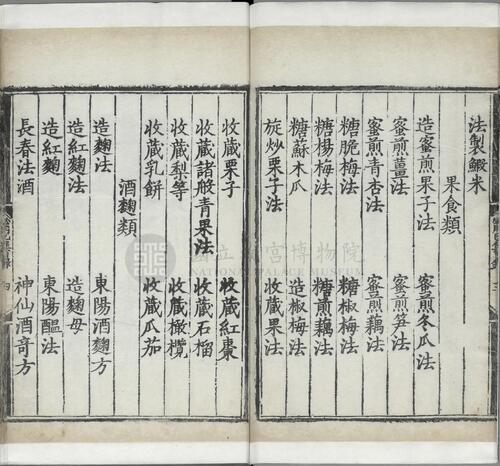 法製鰕米
果食類
造蜜煎果子法 蜜煎冬瓜法
蜜煎薑法 蜜煎笋法
蜜煎青杏法 蜜煎藕法
糖脆梅法 糖椒梅法
糖楊梅法 糖煎藕法
糖蘇木瓜 造椒梅法
旋炒栗子法 收藏果法
收藏栗子 收藏紅棗
收藏諸般青果法 收藏石榴
收藏梨等 收藏橄欖
收藏乳餅 收藏瓜茄
酒麴類
造麴法 東陽酒麴方
造紅麴法 造麴母
造紅麴 東陽醞法
長春法酒 神仙酒奇方
國立故宮博物院
NATIONAL PALACE MUSEUM
四